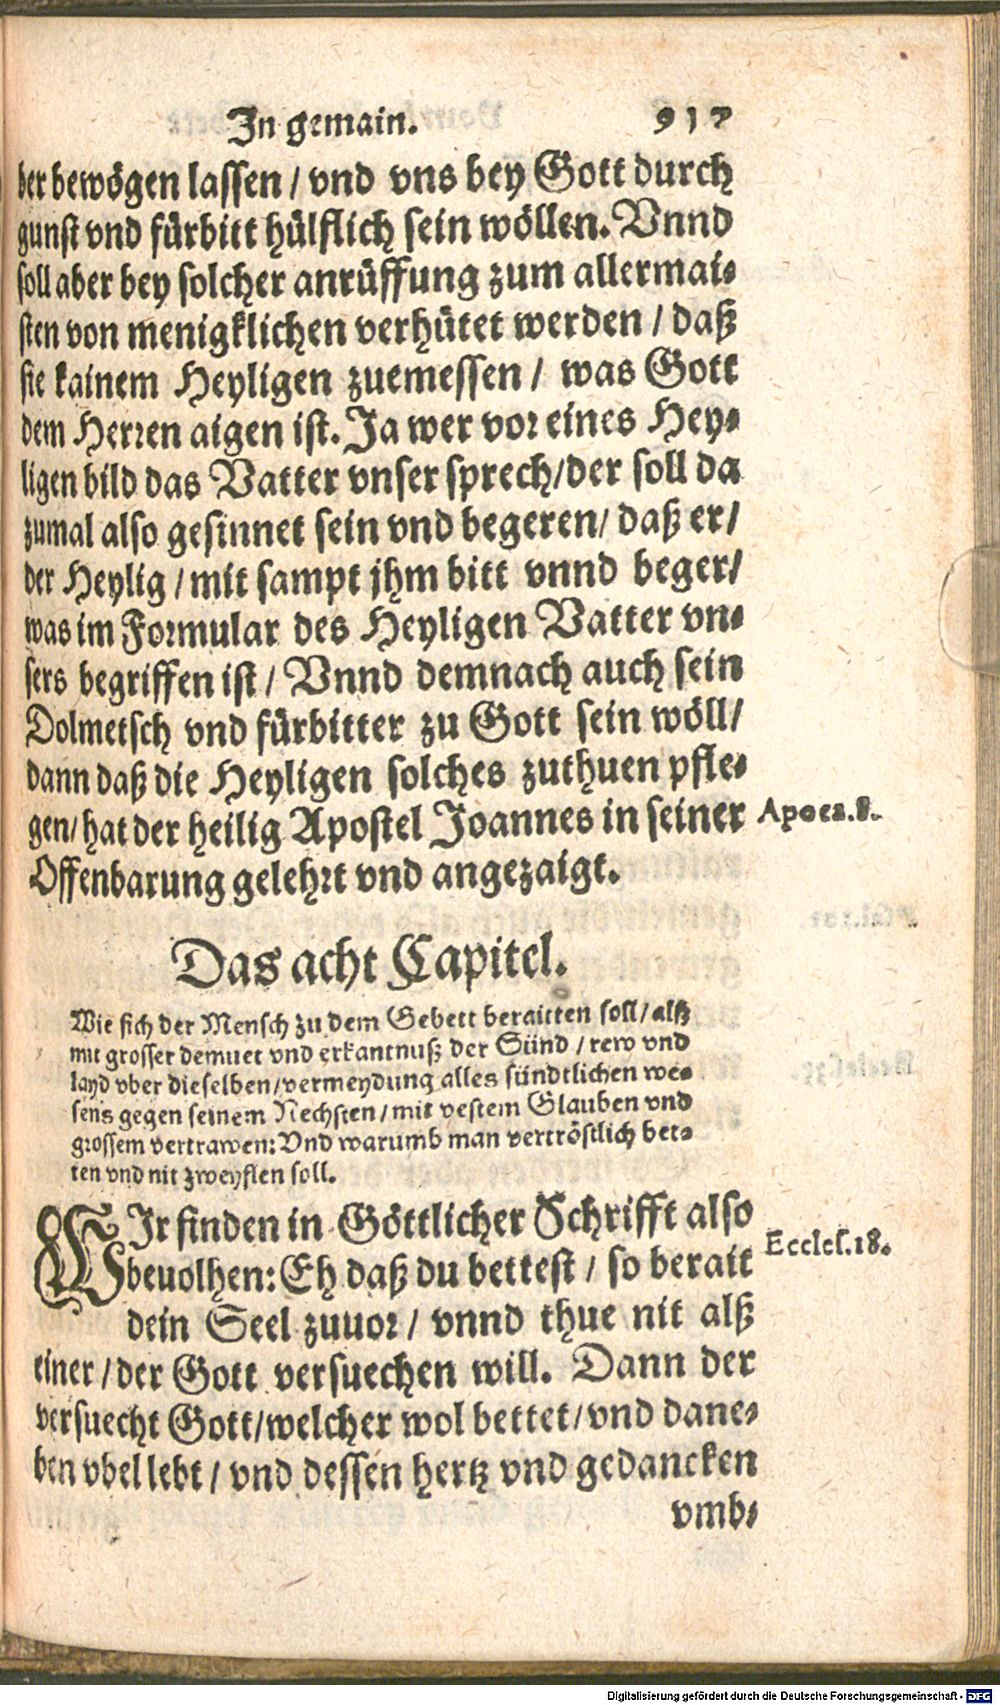 In gemain. 917
der bewögen lassen / vnd vns bey Gott durch
gunst vnd fürbitt hülflich sein wöllen. Vnnd
soll aber bey solcher anrüffung zum allermai⸗
sten von menigklichen verhütet werden / daß
sie kainem Heyligen zuemessen / was Gott
dem Herren aigen ist. Ja wer vor eines Hey⸗
ligen bild das Vatter vnser sprech/der soll da
zumal also gesinnet sein vnd begeren/ daß er/
der Heylig / mit sampt jhm bitt vnnd beger/
was im Formular des Heyligen Vatter vn⸗
sers begriffen ist / Vnnd demnach auch sein
Dolmetsch vnd fürbitter zu Gott sein wöll/
dann daß die Heyligen solches zuthuen pfle⸗
gen/ hat der heilig Apostel Joannes in seiner
Apoca.8.
Offenbarung gelehrt vnd angezaigt.
Das acht Capitel.
Wie sich der Mensch zu dem Gebett beraitten soll / alß
mit grosser demuet vnd erkantnuß der Sünd / rew vnd
layd vber dieselben/vermeydung alles sündtlichen we⸗
sens gegen seinem Nechsten / mit vestem Glauben vnd
grossem vertrawen: Vnd warumb man vertröstlich bet⸗
ten vnd nit zweyflen soll.
WIr finden in Göttlicher Schrifft also
beuolhen: Eh daß du bettest / so berait
Eccles.18.
dein Seel zuuor / vnnd thue nit alß
einer / der Gott versuechen will. Dann der
versuecht Gott/welcher wol bettet/vnd dane⸗
ben vbel lebt / vnd dessen hertz vnd gedancken
vmb⸗
Digitalisierung gefördert durch die Deutsche Forschungsgemeinschaft - DFG